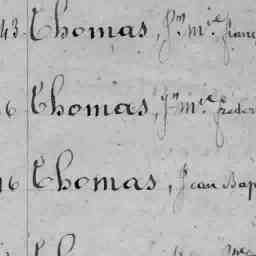 43 Thomas, Jn mie franc
6 Thomas, Jn mie freder
16 Thomas, Jean Bap
Thomas